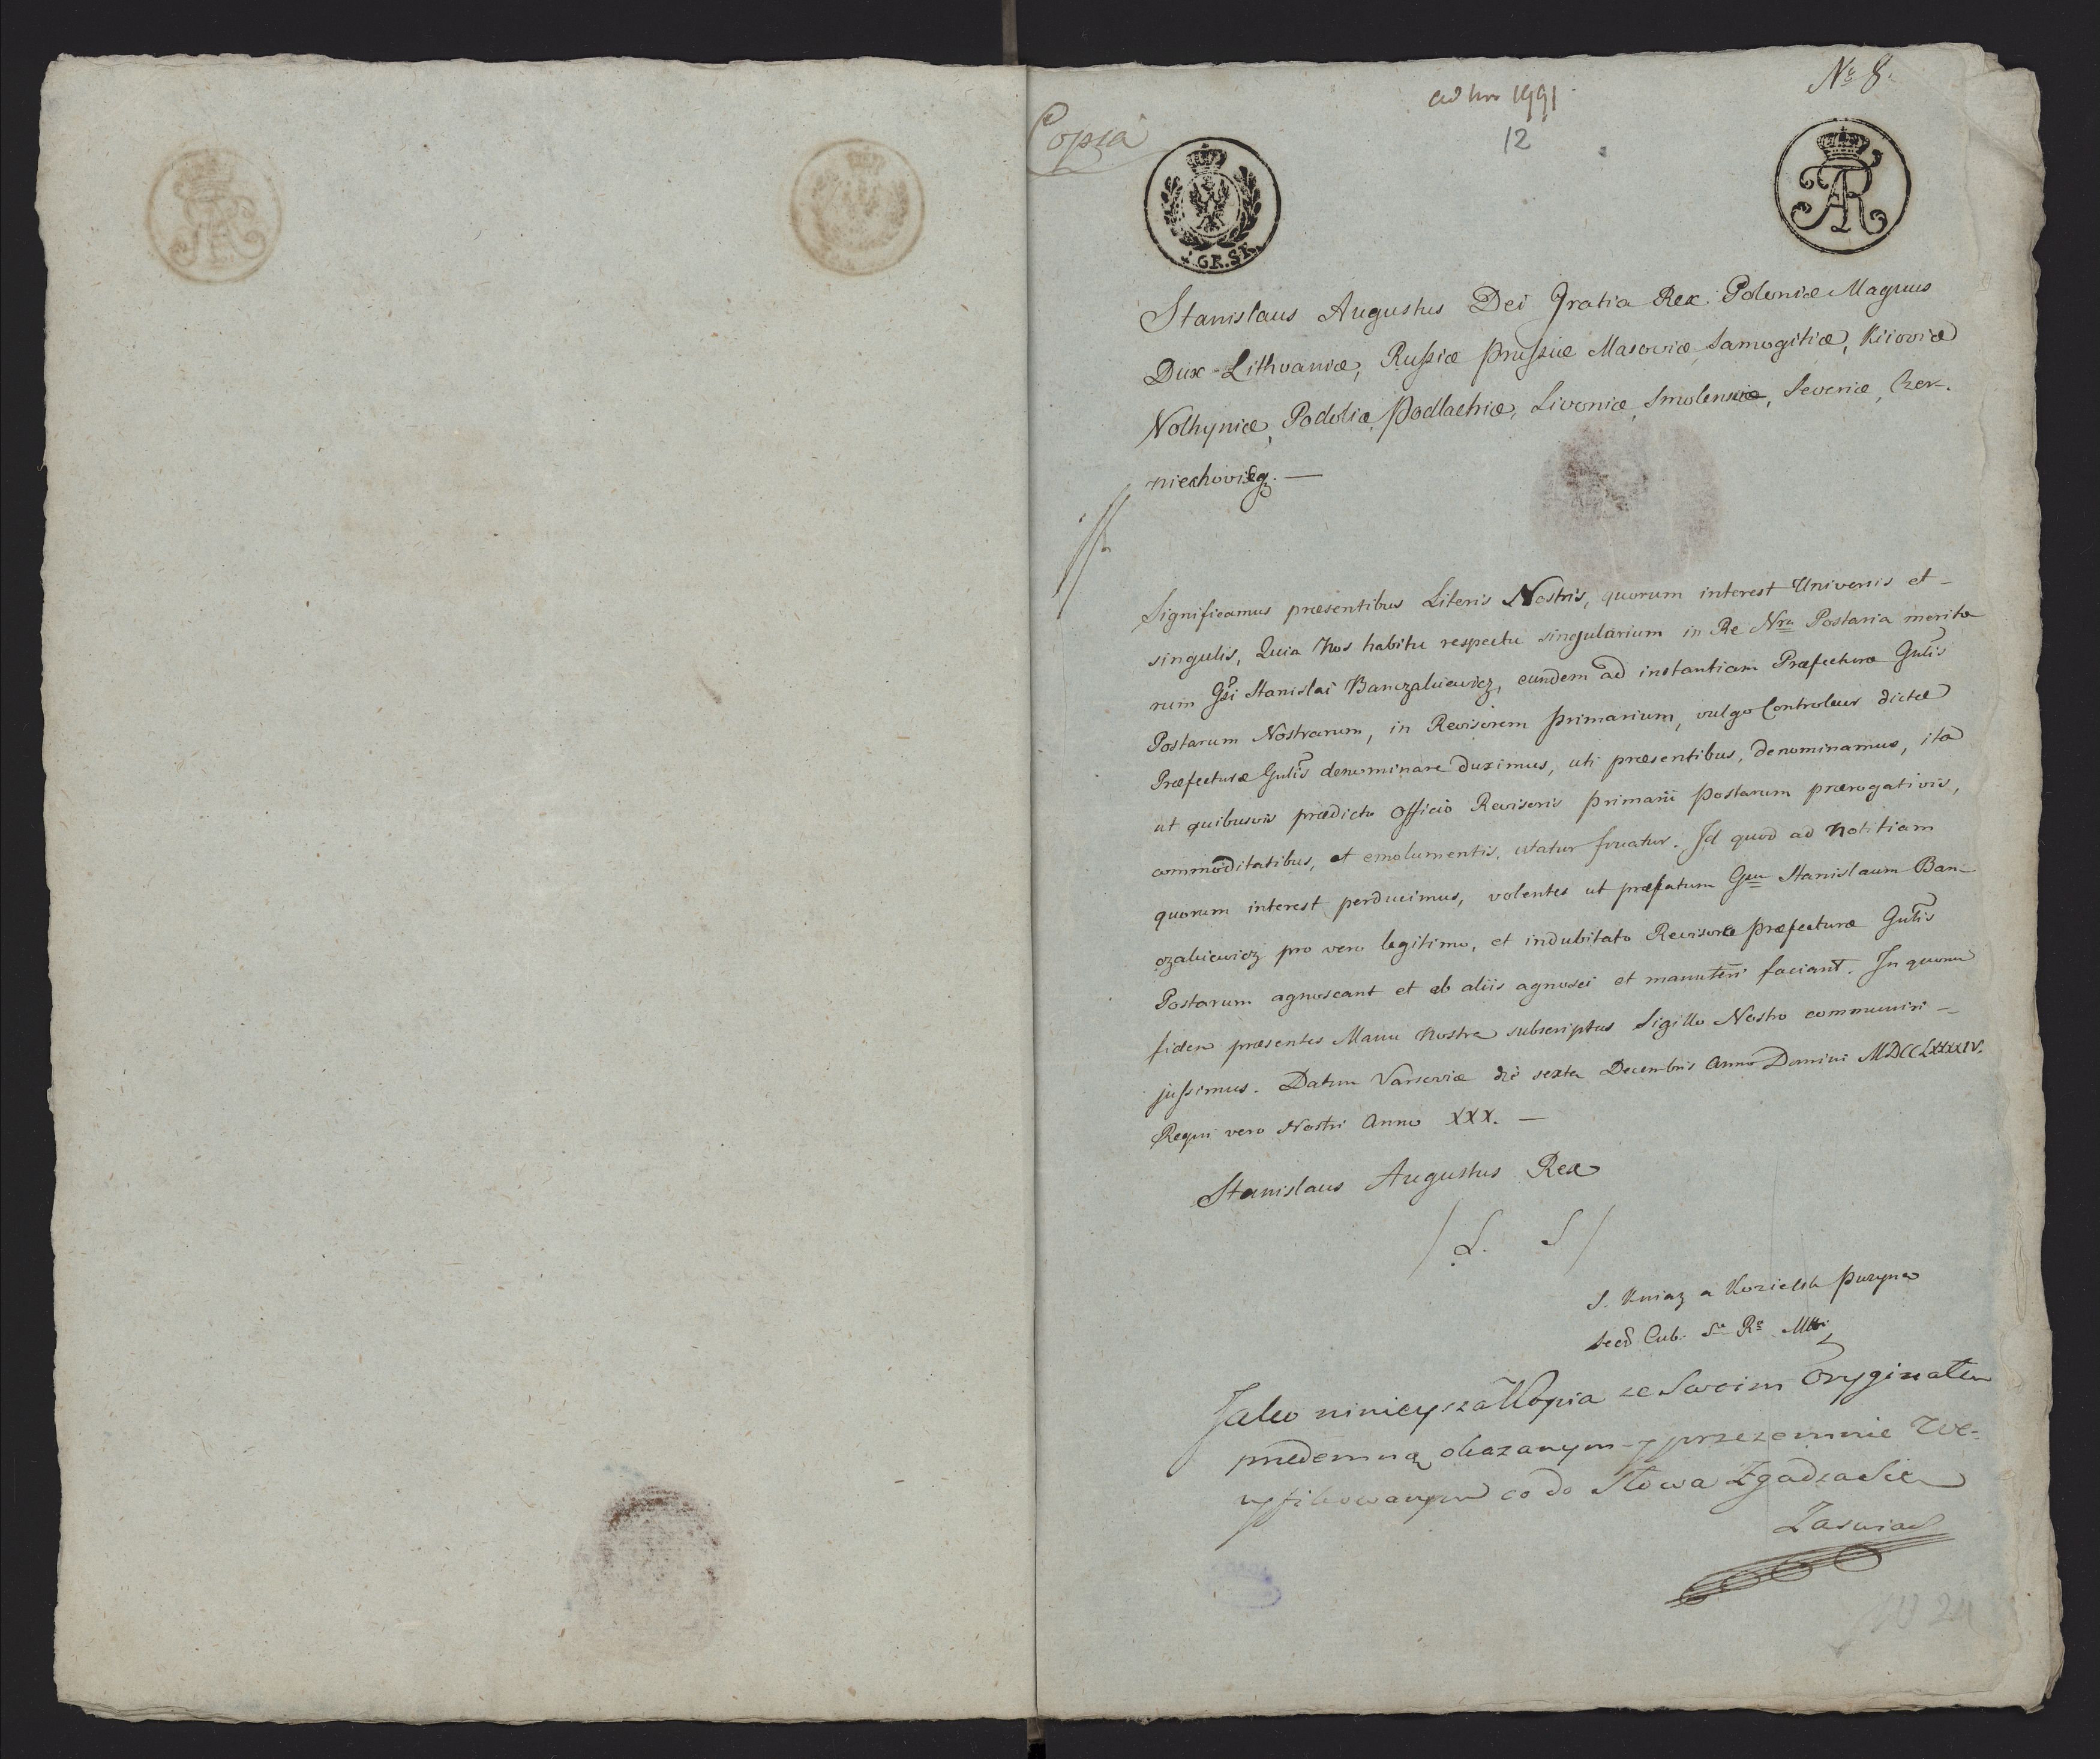 No 8.
ad Nro 1991
12
Copia
GR.SK.
AR
Stanislaus Augustus Dei Gratia Rex Poloniæ Magnus
Dux Lithvaniæ, Rußiæ Prußiæ Masoviæ Samogitiæ, Kiioviæ
Volhyniæ, Podoliæ, Podlachiæ, Livoniæ, Smolensciæ, Severiæ, Czer-
niechoviæq. —
Significamus præsentibus Literis Nostris, quorum interest Universis et -
singulis, Quia Nos habitu respectu singularium in Re Nra Postaria merito
rum Gsi Stanislai Banczakiewicz, eundem ad instantiam Præfecturæ Gnlis
Postarum Nostrarum, in Revisorem primarium, vulgo Controleur dictæ
Præfecturæ Gnlis denominare duximus, uti præsentibus, denominamus, ita
ut quibusvis prædicto officio Revisoris primarii Postarum prærogativis,
commoditatibus, et emolumentis, utatur fruatur. Id quod ad Notitiam
quorum interest perducimus, volentes ut præfatum Gsum Stanislaum Ban-
czakiewicz pro vero legitimo, et indubitato Revisore Præfecturæ Gnlis
Postarum agnoscant et ab aliis agnosci et manuteri faciant. In quorum
fidem præsentes Manu Nostra subscriptas Sigillo Nostro communiri -
jußimus. Datum Varsoviæ die sexta Decembris Anno Domini MDCCLXXXXIV.
Regni vero Nostri Anno XXX. —
Stanislaus Augustus Rex
/ L. S /
S. Kniaz a Kozielsk Puzyna
Secr Cub. Sæ Ræ Mtis
Jako ninieysza Kopia ze Swoim Oryginałem
przedemną okazanym y przezemnie We-
ryfikowanym co do Słowa Zgadza Się
Zaswiad